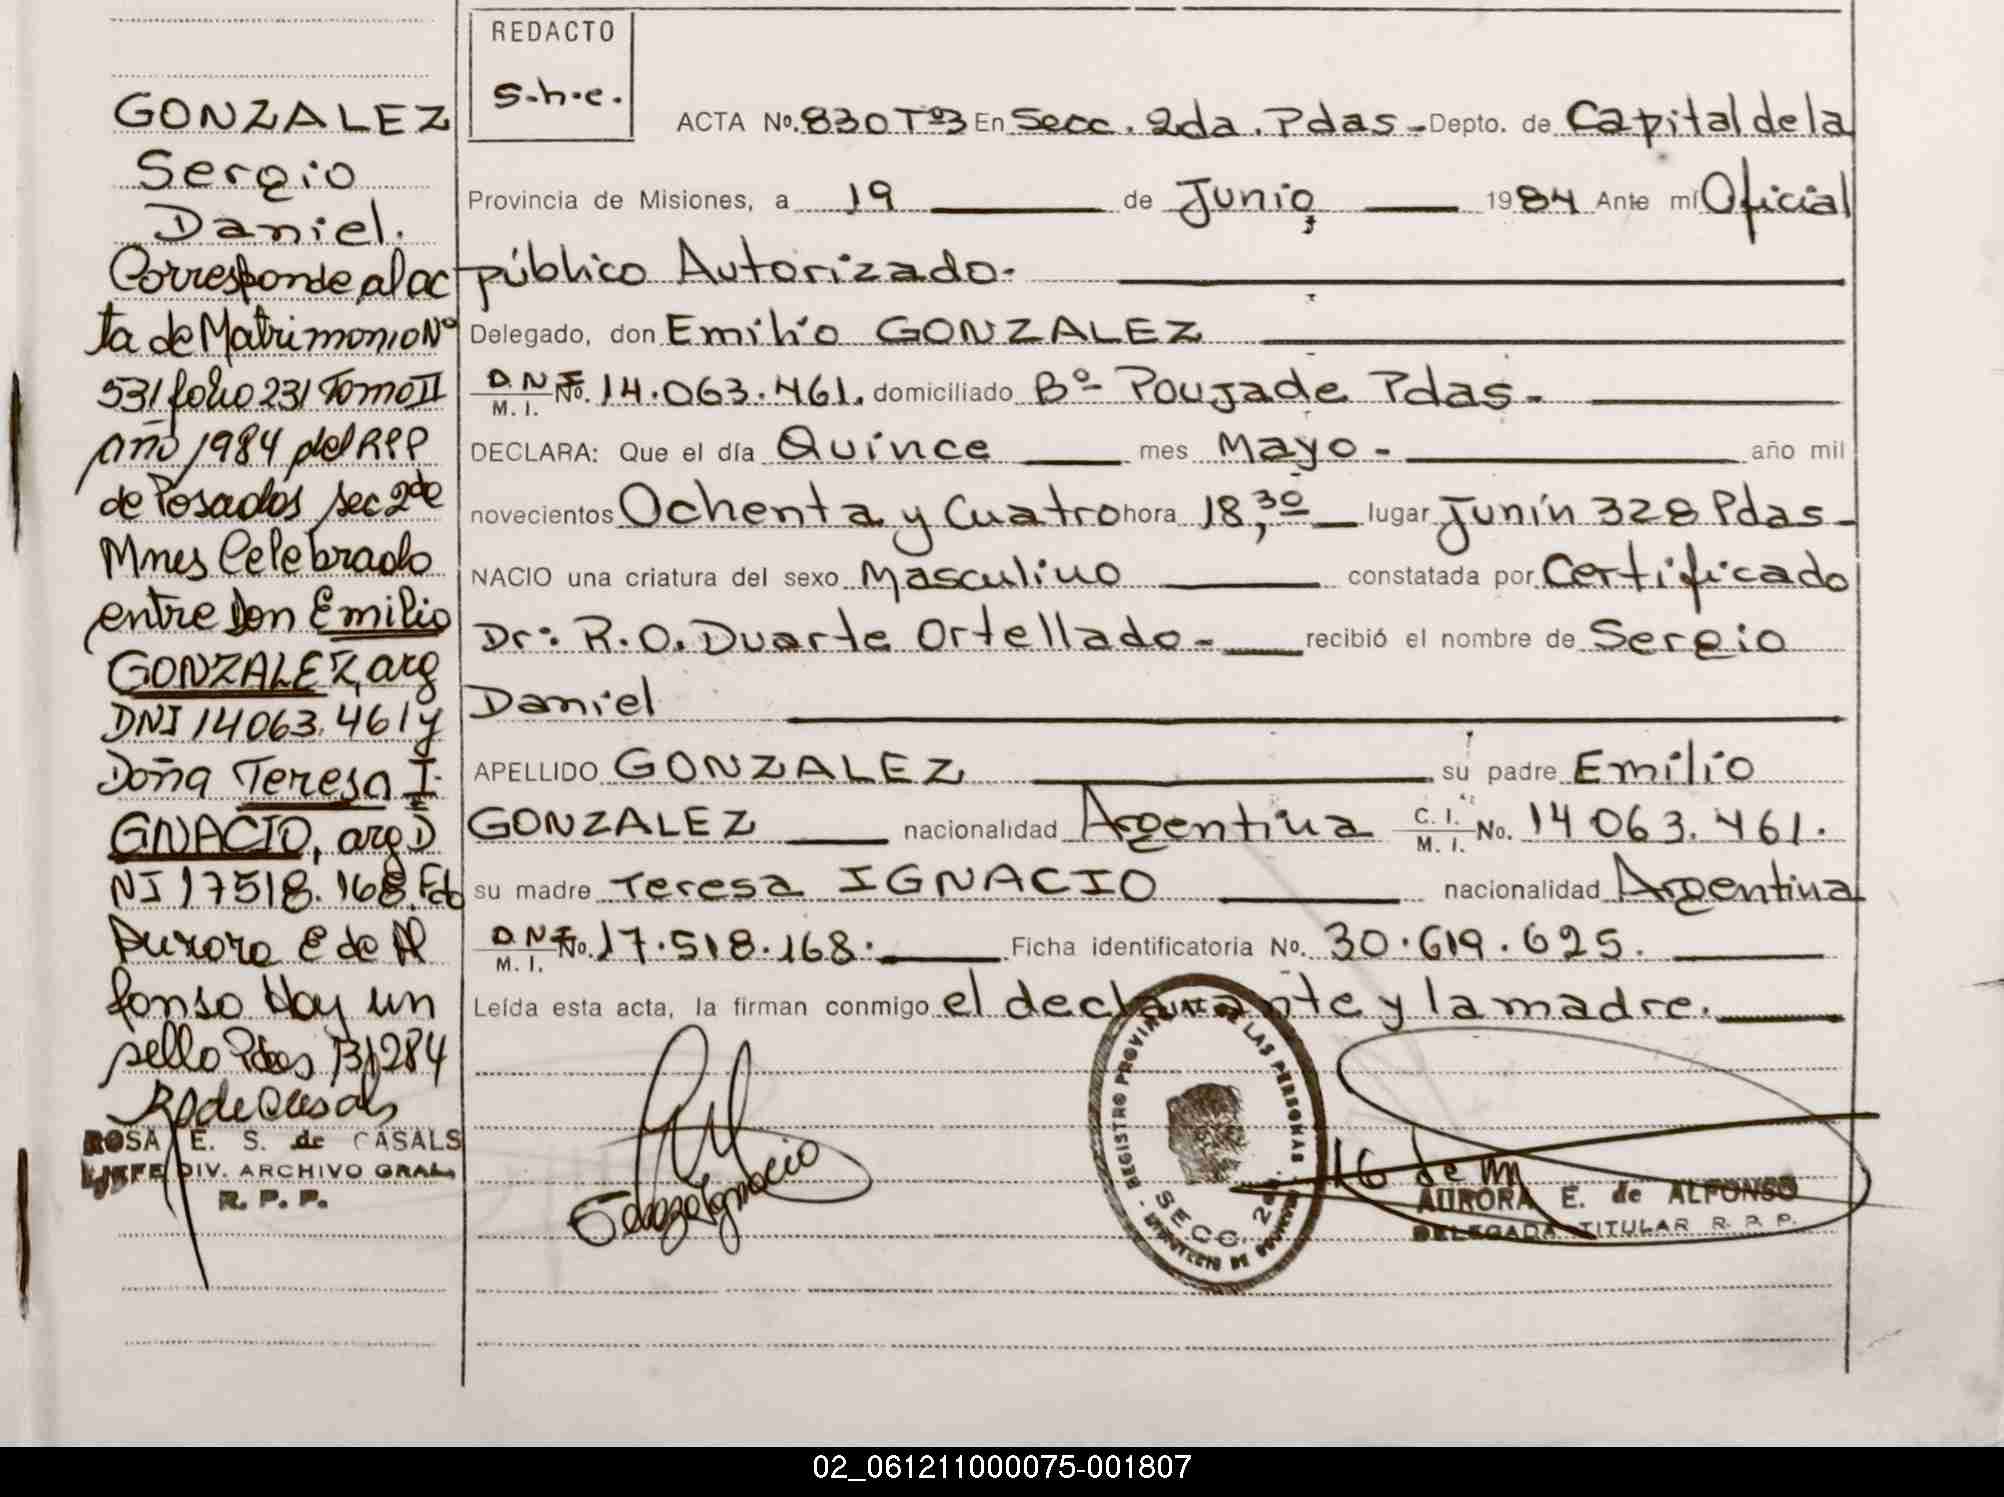 REDACTO
s-h-e.
GONZALEZ
Sergio
Daniel.
Corresponde al ac
ta de Matrimonio Nº
531 folio 231 Tomo II
año 1984 del RPP
de Posadas sec 2da
Mnes Celebrado
entre Don Emilio
GONZALEZ, arg
DNI 14063.461 y
Doña Teresa I-
GNACIO, arg D
NI 17518.168. Fdo
Aurora E de Al
fonso Hay un
sello Pdas
ROSA E. S. de CASALS
JEFE DIV. ARCHIVO GRAL.
R. P. P.
ACTA No. 830 Tº3 En Secc. 2da. Pdas - Depto. de Capital de la
Provincia de Misiones, a 19 de Junio 1984 Ante mí Oficial
público Autorizado.
Delegado, don Emilio GONZALEZ
D.N.I. M. I. No. 14.063.461. domiciliado Bº Poujade Pdas.
DECLARA: Que el día Quince mes Mayo - año mil
novecientos Ochenta y Cuatro hora 18,30 lugar Junín 328 Pdas -
NACIO una criatura del sexo Masculino constatada por Certificado
Dr: R.O. Duarte Ortellado - recibió el nombre de Sergio
Daniel
APELLIDO GONZALEZ su padre Emilio
GONZALEZ nacionalidad Argentina C. I. M. I. No. 14.063.461.
su madre Teresa IGNACIO nacionalidad Argentina
D.N.I. M. I. No. 17.518.168. Ficha identificatoria No. 30.619.625.
Leída esta acta, la firman conmigo el declarante y la madre.
REGISTRO PROVINCIAL DE LAS PERSONAS
SECC. 2da.
AURORA E. de ALFONSO
DELEGADA TITULAR R. P. P.
02_061211000075-001807